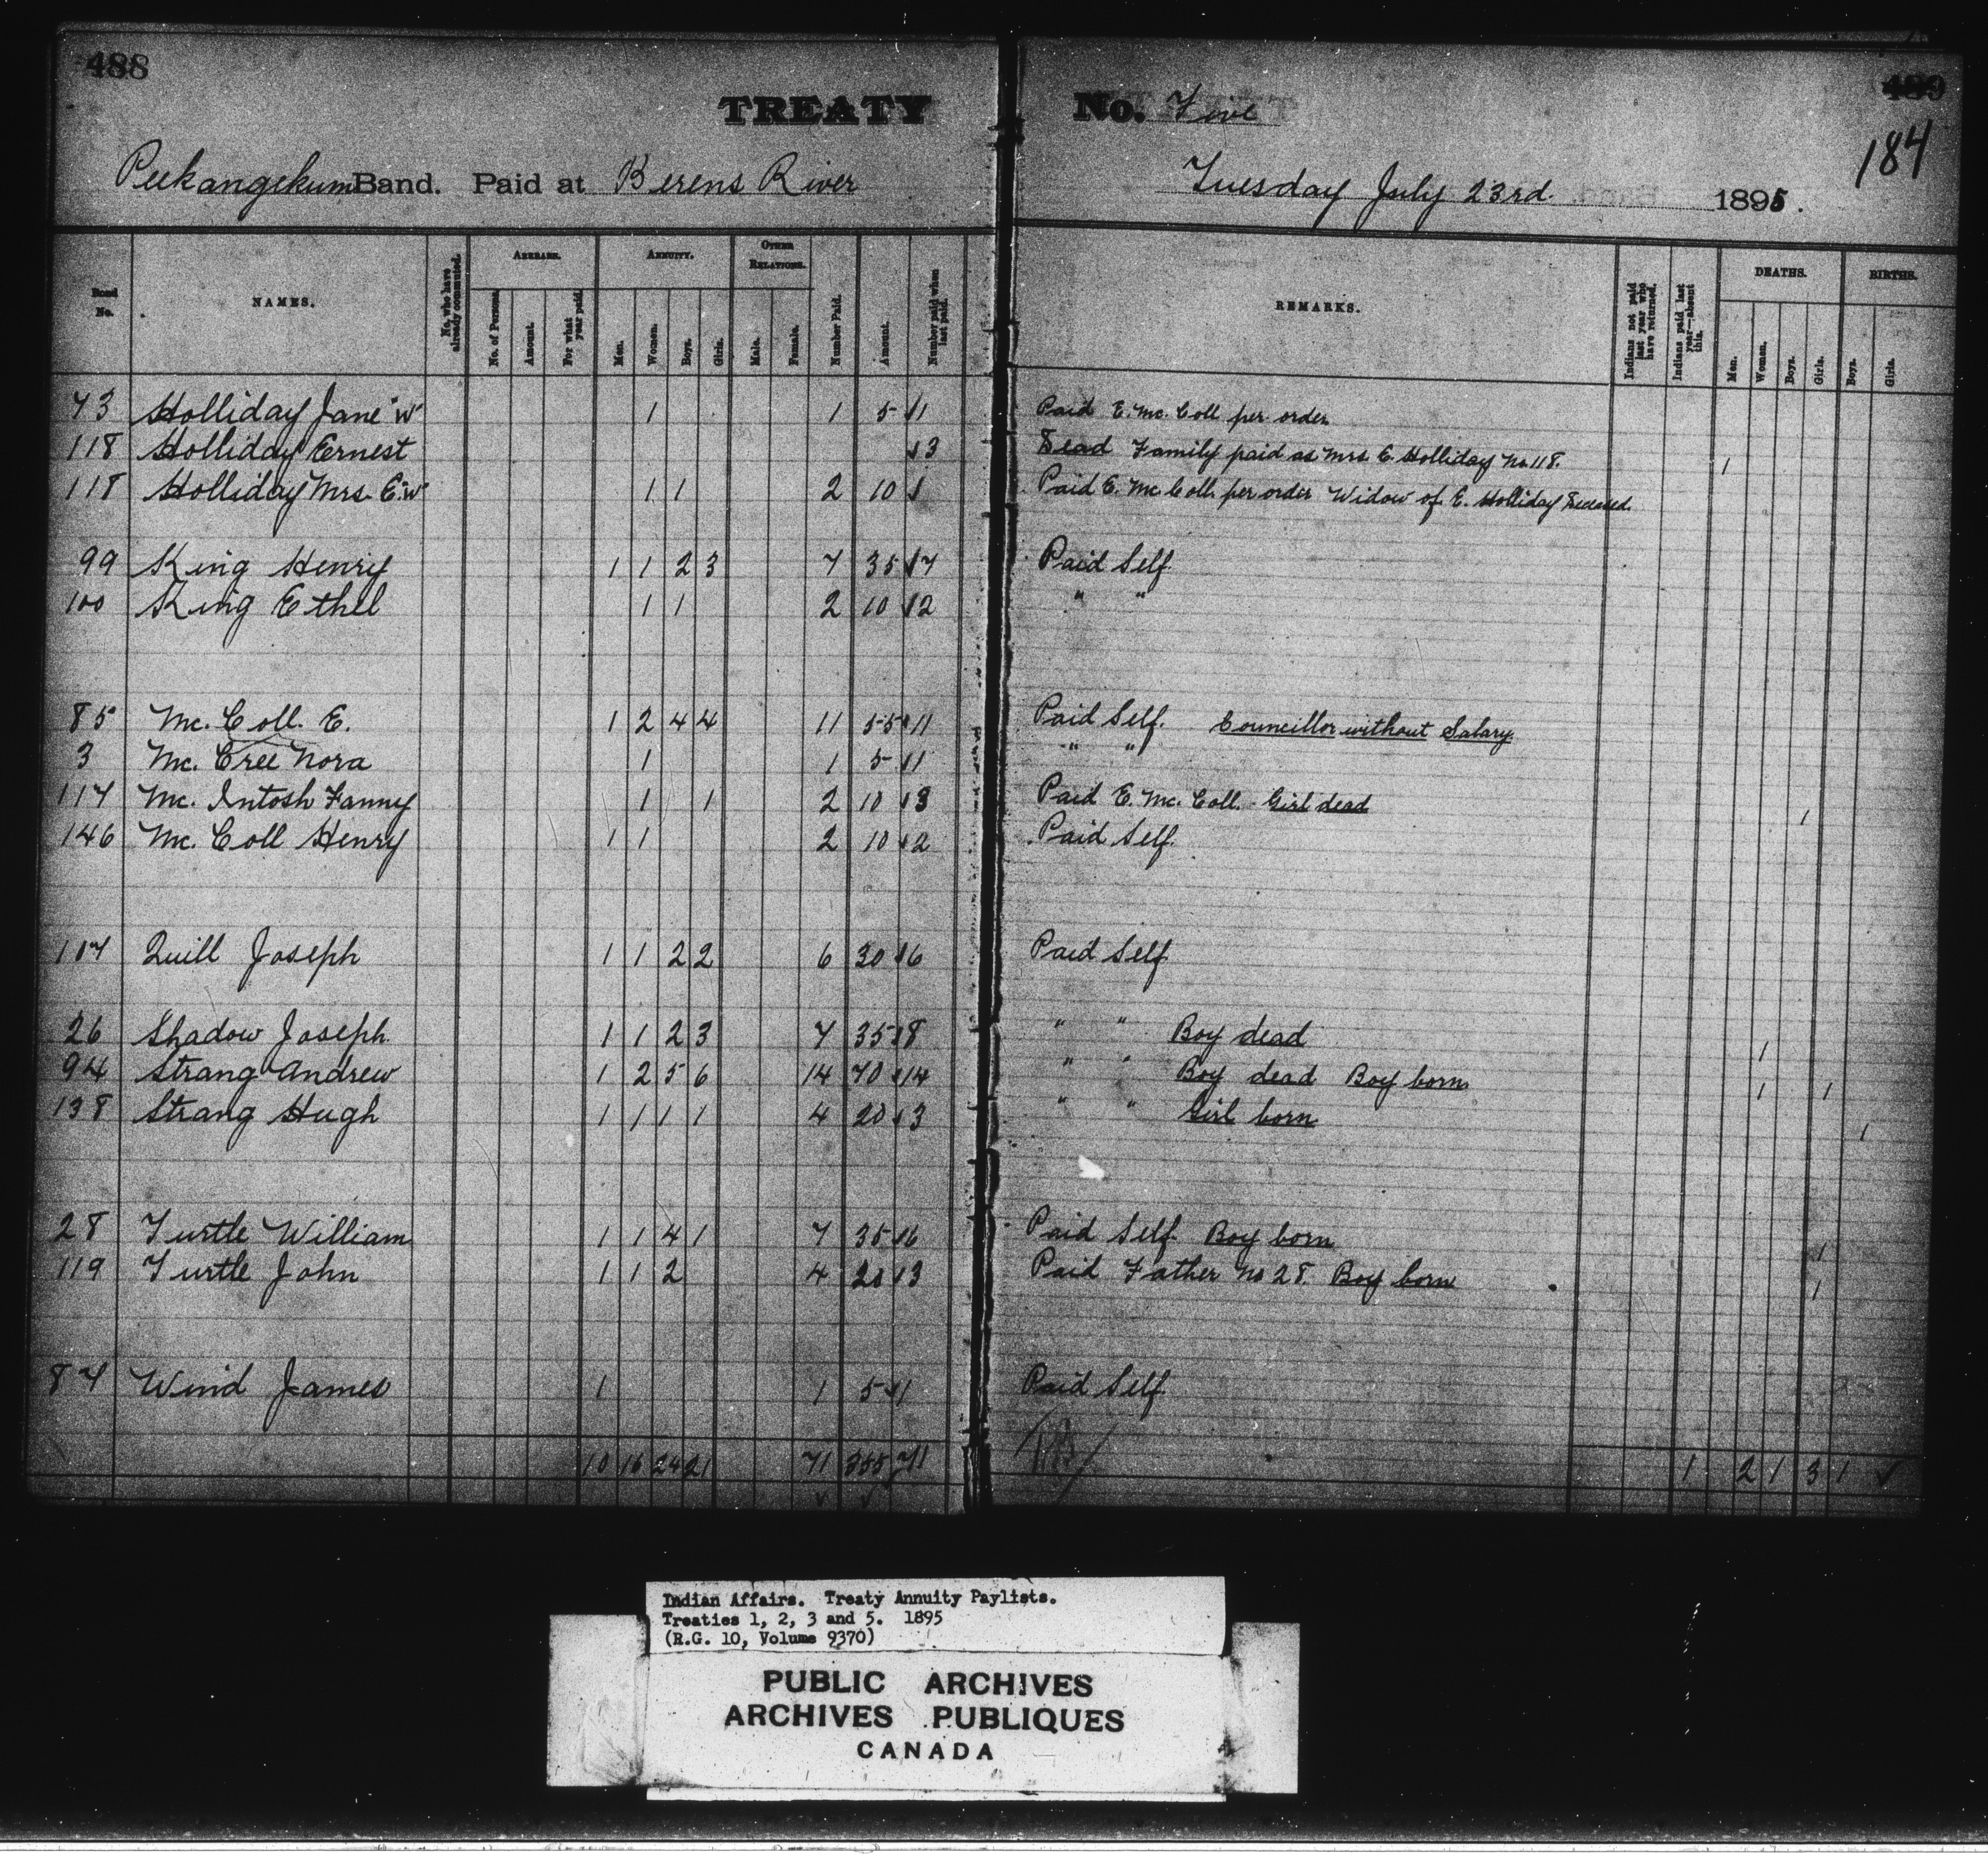 488
TREATY No. Five
489
184
Peekangekum Band. Paid at Berens River Tuesday July 23rd. 1895.
Band No. NAMES. No. who have already commuted. ARREARS. No. of Persons. Amount. For what year paid. ANNUITY. Men. Women. Boys. Girls. OTHER RELATIONS. Male. Female. Number Paid. Amount. Number paid when last paid. REMARKS. Indians not paid last year who have returned. Indians paid last year—absent this. DEATHS. Men. Women. Boys. Girls. BIRTHS. Boys. Girls.
73 Holliday Jane "W" 1 1 5 1 Paid E. Mc. Coll per order
118 Holliday Ernest 3 Dead Family paid as Mrs. E. Holliday No. 118. 1
118 Holliday Mrs. E. "W" 1 1 2 10 Paid E. Mc Coll per order Widow of E. Holliday Deceased.
99 King Henry 1 1 2 3 7 35 7 Paid Self
100 King Ethel 1 1 2 10 2 " "
85 Mc. Coll. E. 1 2 4 4 11 55 11 Paid Self. Councillor without Salary.
3 Mc. Cree Nora 1 1 5 1 " "
117 Mc. Intosh Fanny 1 1 2 10 3 Paid E. Mc. Coll. - Girl dead 1
146 Mc. Coll Henry 1 1 2 10 2 Paid Self.
107 Quill Joseph 1 1 2 2 6 30 6 Paid Self
26 Shadow Joseph. 1 1 2 3 7 35 8 " " Boy dead 1
94 Strang Andrew 1 2 5 6 14 70 14 " " Boy dead Boy born 1 1
138 Strang Hugh 1 1 1 1 4 20 3 " " Girl born 1
28 Turtle William 1 1 4 1 7 35 6 Paid Self. Boy born 1
119 Turtle John 1 1 2 4 20 3 Paid Father No 28. Boy born 1
87 Wind James 1 1 5 1 Paid Self
10 16 24 21 71 355 71 1 2 1 3 1
Indian Affairs. Treaty Annuity Paylists.
Treaties 1, 2, 3 and 5. 1895
(R.G. 10, Volume 9370)
PUBLIC ARCHIVES
ARCHIVES PUBLIQUES
CANADA